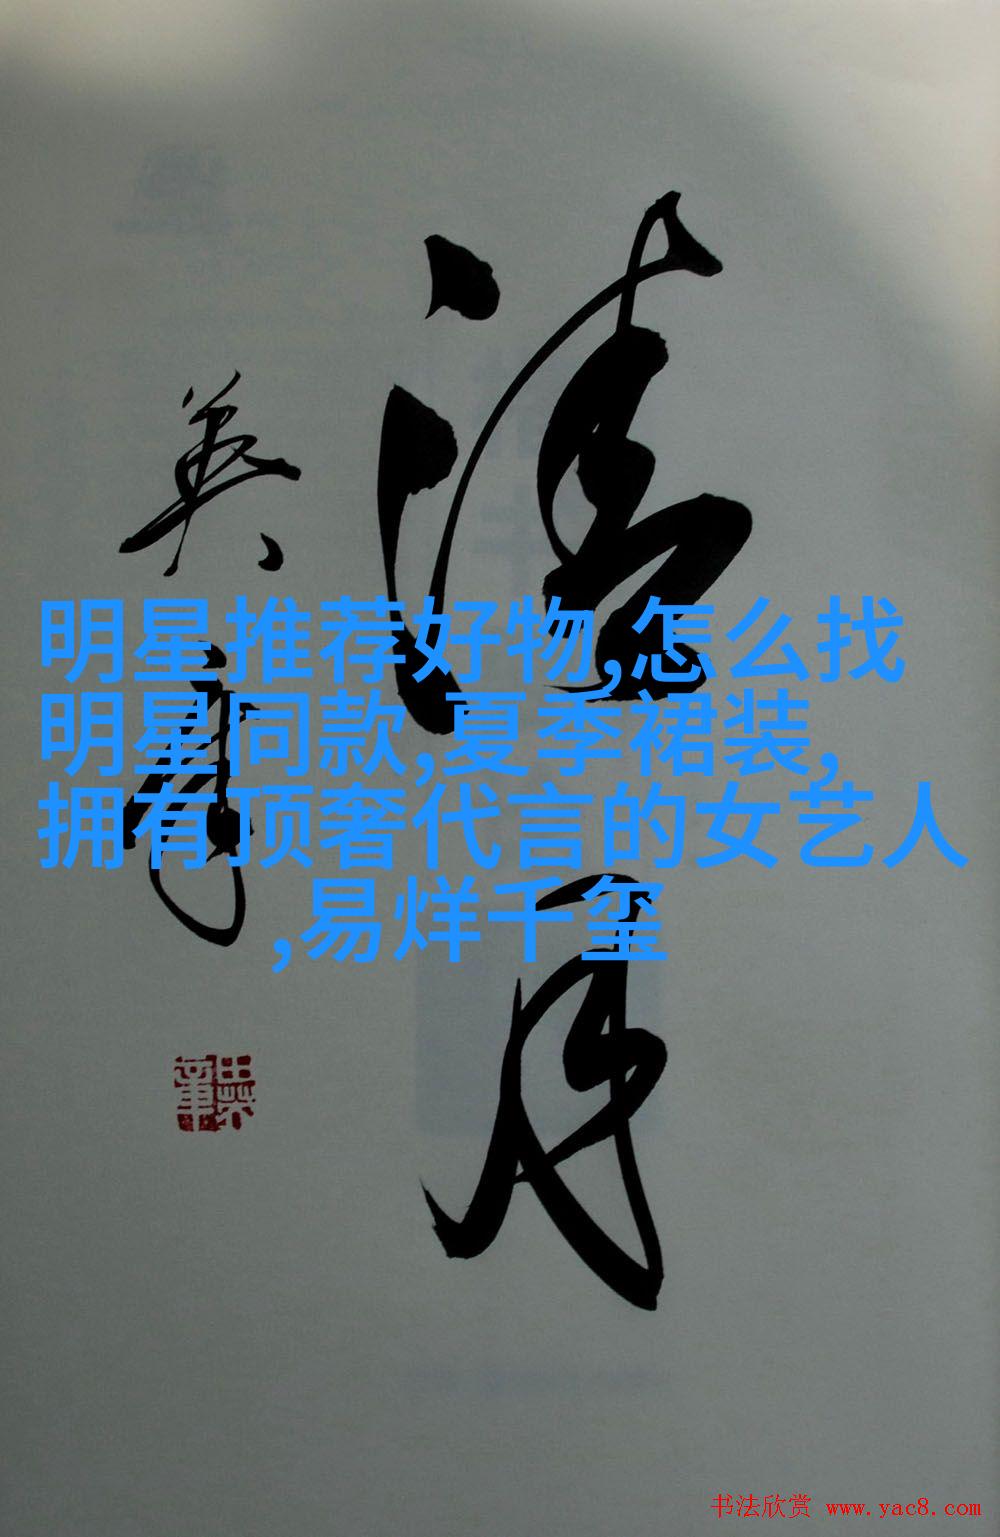 清月
英章
田英章
明星推荐好物,怎么找
明星同款,夏季裙装,
拥有顶奢代言的女艺人
,易烊千玺
书法欣赏 www.yac8.com